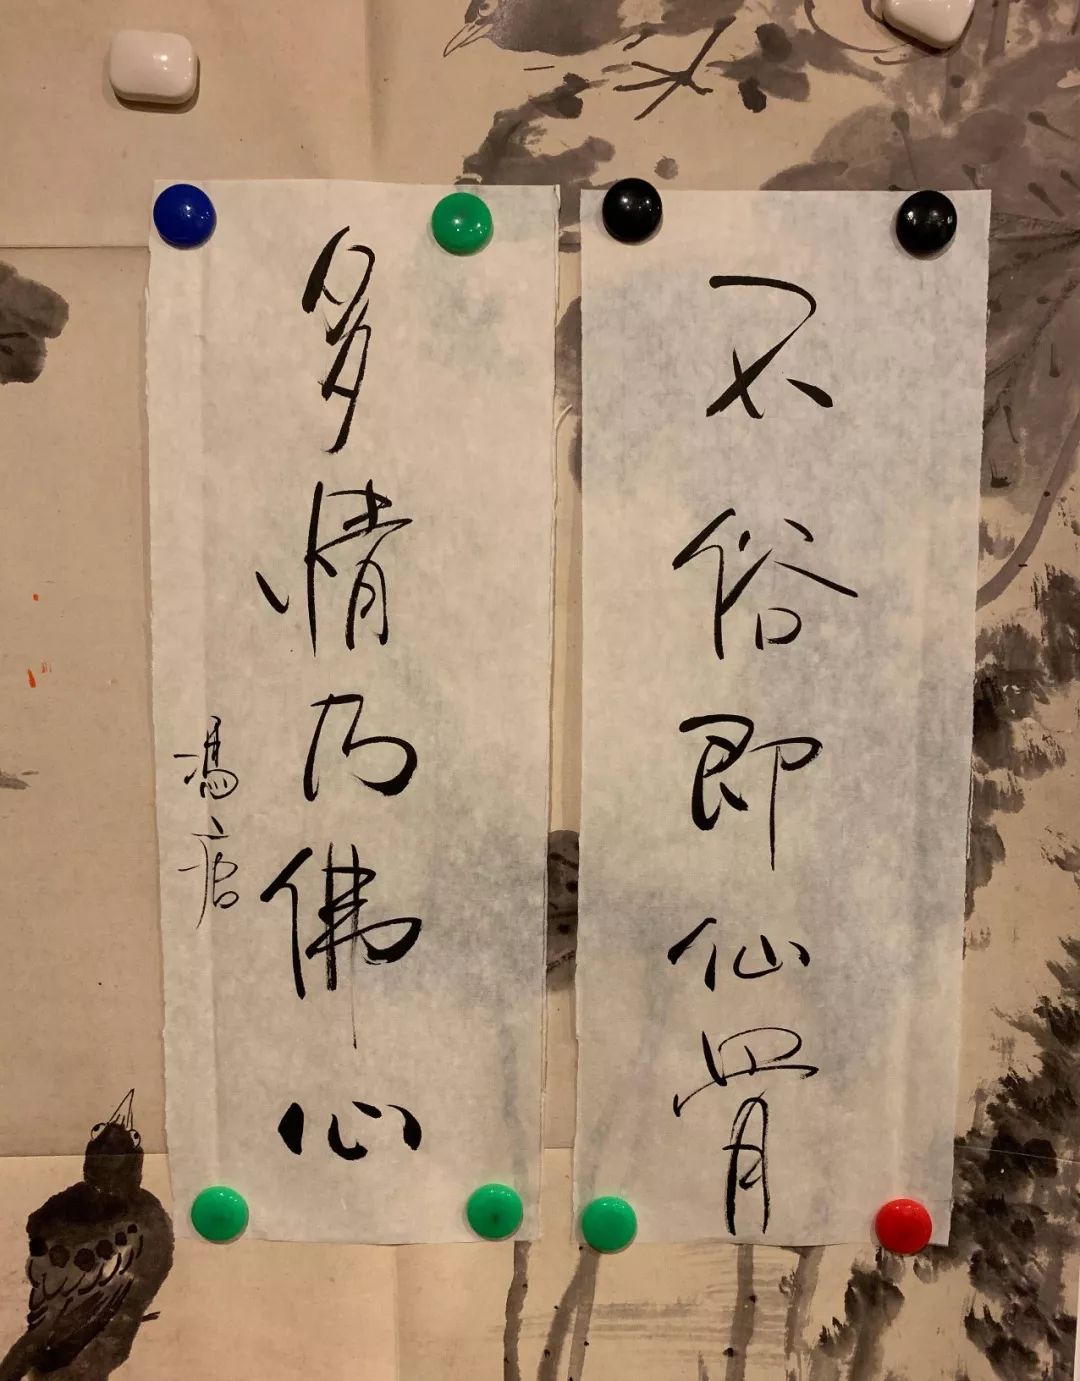 不俗即仙骨
多情乃佛心
馮唐